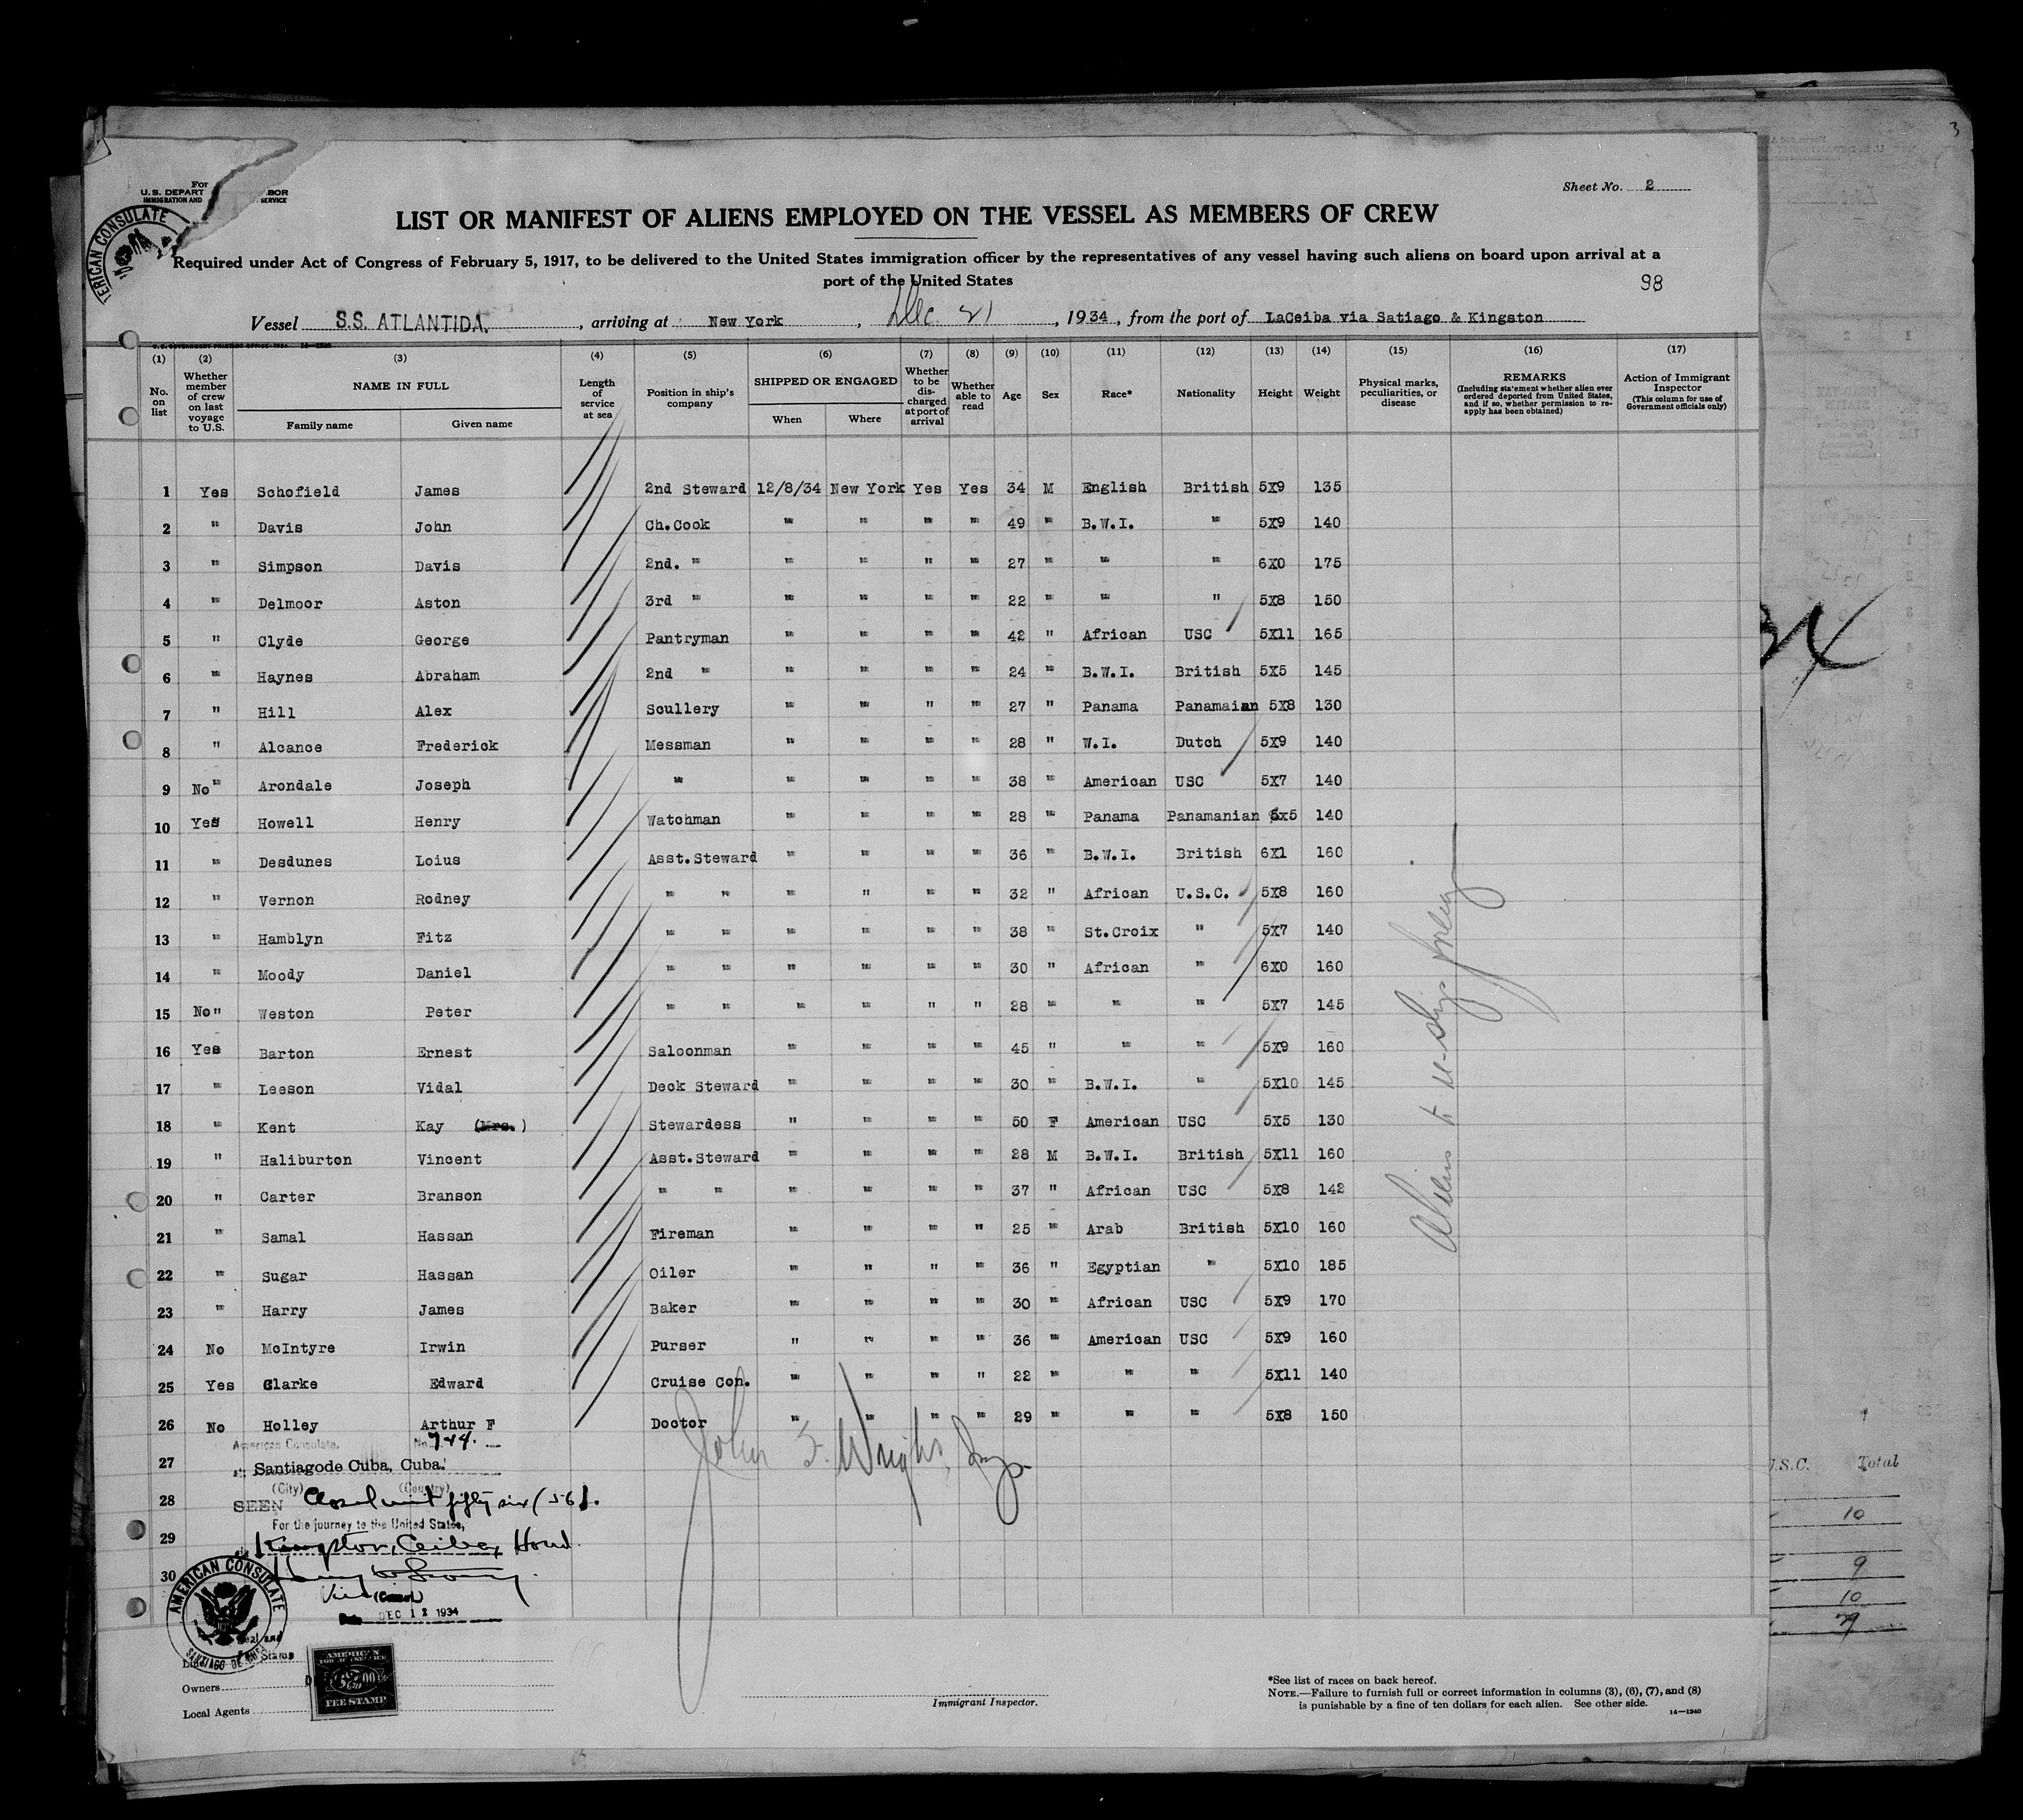 3
For
U.S. DEPART BOR
IMMIGRATION AND SERVICE
Sheet No. 2
ERICAN CONSULATE
LIST OR MANIFEST OF ALIENS EMPLOYED ON THE VESSEL AS MEMBERS OF CREW
Required under Act of Congress of February 5, 1917, to be delivered to the United States immigration officer by the representatives of any vessel having such aliens on board upon arrival at a
port of the United States
98
Vessel S.S. ATLANTIDA. , arriving at New York , Dec. 21 , 1934 , from the port of LaCeiba via Satiago & Kingston
(1) (2) (3) (4) (5) (6) (7) (8) (9) (10) (11) (12) (13) (14) (15) (16) (17)
No. on list
Whether member of crew on last voyage to U.S.
NAME IN FULL
Family name Given name
Length of service at sea
Position in ship's company
SHIPPED OR ENGAGED
When Where
Whether to be discharged at port of arrival
Whether able to read
Age Sex Race* Nationality Height Weight
Physical marks, peculiarities, or disease
REMARKS
(Including statement whether alien ever ordered deported from United States, and if so, whether permission to reapply has been obtained)
Action of Immigrant Inspector
(This column for use of Government officials only)
1 Yes Schofield James 2nd Steward 12/8/34 New York Yes Yes 34 M English British 5X9 135
2 " Davis John Ch.Cook " " " " 49 " B.W.I. " 5X9 140
3 " Simpson Davis 2nd. " " " " " 27 " " " 6X0 175
4 " Delmoor Aston 3rd " " " " " 22 " " " 5X8 150
5 " Clyde George Pantryman " " " " 42 " African USC 5X11 165
6 " Haynes Abraham 2nd " " " " " 24 " B.W.I. British 5X5 145
7 " Hill Alex Scullery " " " " 27 " Panama Panamaian 5X8 130
8 " Alcance Frederick Messman " " " " 28 " W.I. Dutch 5X9 140
9 No" Arondale Joseph " " " " " 38 " American USC 5X7 140
10 Yes Howell Henry Watchman " " " " 28 " Panama Panamanian 5x5 140
11 " Desdunes Loius Asst.Steward " " " " 36 " B.W.I. British 6X1 160
12 " Vernon Rodney " " " " " " 32 " African U.S.C. 5X8 160
13 " Hamblyn Fitz " " " " " " 38 " St.Croix " 5X7 140
14 " Moody Daniel " " " " " " 30 " African " 6X0 160
15 No" Weston Peter " " " " " " 28 " " " 5X7 145
16 Yes Barton Ernest Saloonman " " " " 45 " " " 5X9 160
17 " Leeson Vidal Deck Steward " " " " 30 " B.W.I. " 5X10 145
18 " Kent Kay (Mrs.) Stewardess " " " " 50 F American USC 5X5 130
19 " Haliburton Vincent Asst.Steward " " " " 28 M B.W.I. British 5X11 160
20 " Carter Branson " " " " " " 37 " African USC 5X8 142
21 " Samal Hassan Fireman " " " " 25 " Arab British 5X10 160
22 " Sugar Hassan Oiler " " " " 36 " Egyptian " 5X10 185
23 " Harry James Baker " " " " 30 " African USC 5X9 170
24 No McIntyre Irwin Purser " " " " 36 " American USC 5X9 160
25 Yes Clarke Edward Cruise Con. " " " " 22 " " " 5X11 140
26 No Holley Arthur F Doctor " " " " 29 " " " 5X8 150
American Consulate. No. 744.
27
Santiagode Cuba, Cuba.
(City) (Country)
28
SEEN Closed with fifty six (56).
For the journey to the United States,
29
Kingston, Ceiba, Hond.
30
DEC 12 1934
John S. Wright, Insp.
AMERICAN CONSULATE
SANTIAGO DE CUBA
Seal and
Stamp
AMERICAN
FOREIGN SERVICE
$2.00
FEE STAMP
Owners
Local Agents
Immigrant Inspector.
*See list of races on back hereof.
NOTE.—Failure to furnish full or correct information in columns (3), (6), (7), and (8)
is punishable by a fine of ten dollars for each alien. See other side.
14—1240
U.S.C. Total
10
9
10
29